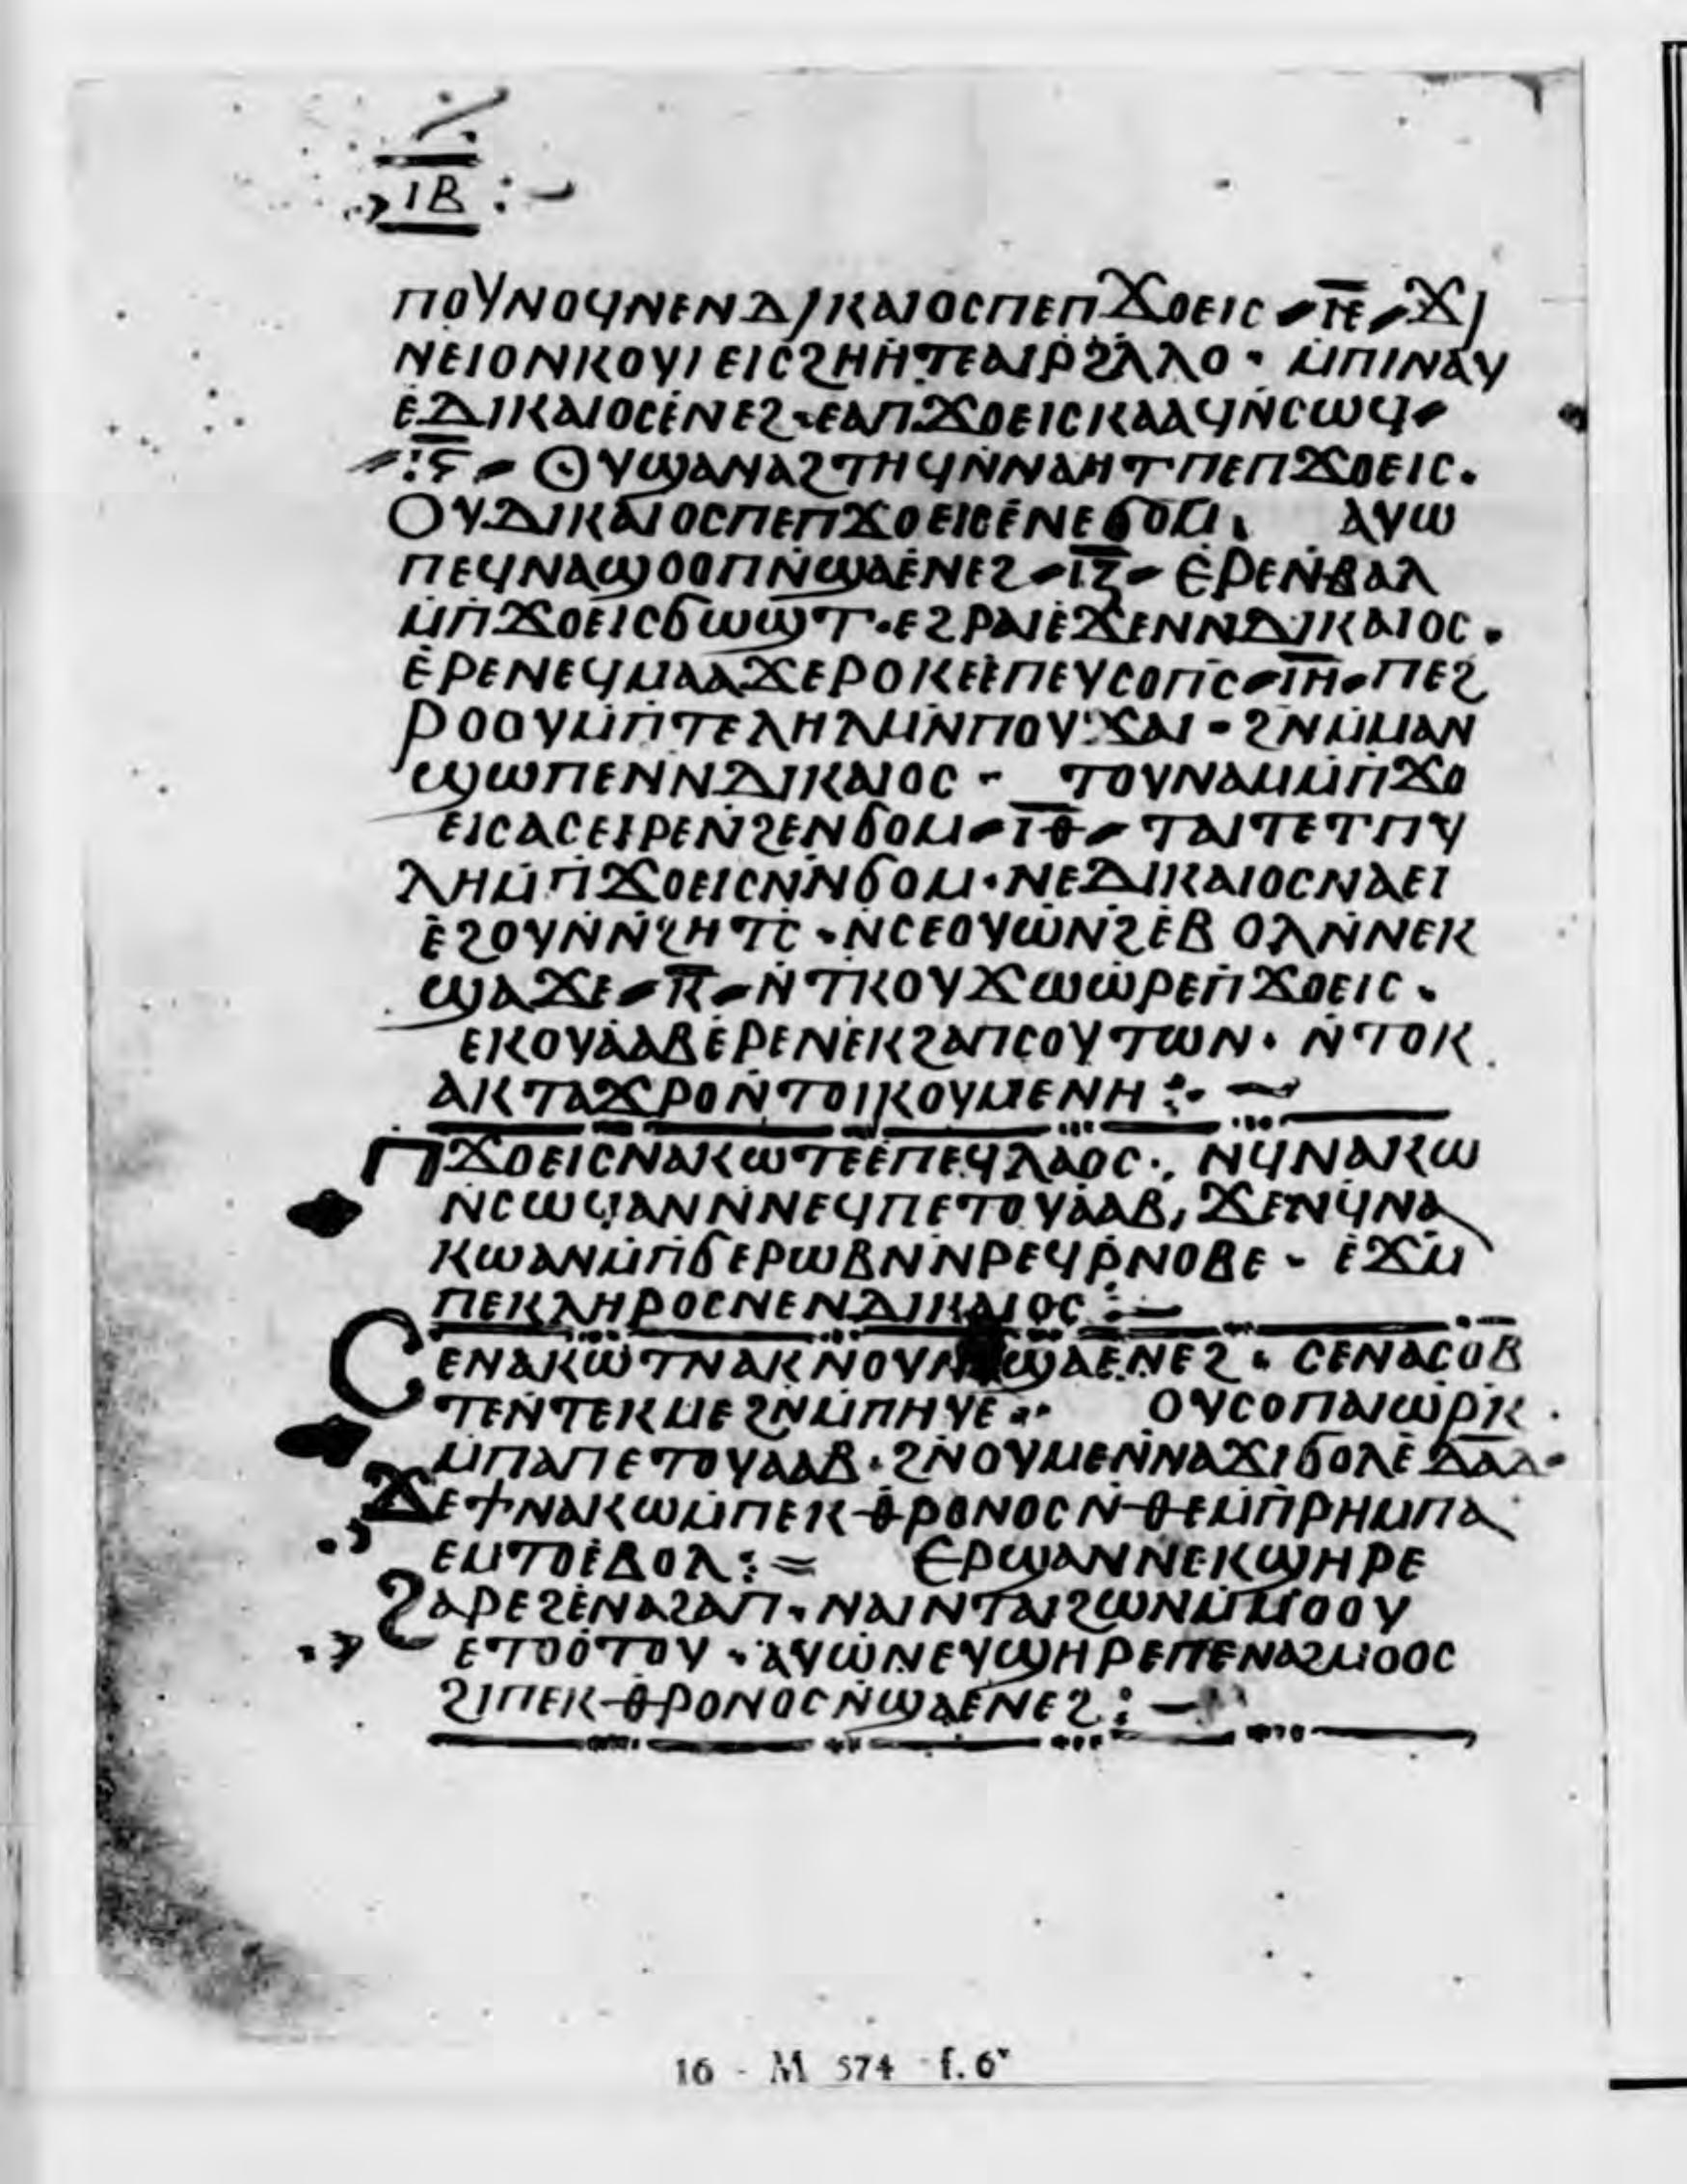 ⲒⲂ :-
ⲠⲞⲨⲚⲞϤⲚⲈⲚⲆⲒⲔⲀⲒⲞⲤⲠⲈⲠϪⲞⲈⲒⲤ ⲒⲈ ϪⲒ
ⲚⲈⲒⲞⲚⲔⲞⲨⲒ ⲈⲒⲤϨⲎⲎⲦⲈⲀⲒⲢϨⲖⲖⲞ · ⲘⲠⲒⲚⲀⲨ
ⲈⲆⲒⲔⲀⲒⲞⲤⲈⲚⲈϨ · ⲈⲀⲠϪⲞⲈⲒⲤⲔⲀⲀϤⲚⲤⲰϤ
ⲒⲊ ⲞⲨϢⲀⲚⲀϨⲦⲎϤⲚⲚⲀⲎⲦⲠⲈⲠϪⲞⲈⲒⲤ.
ⲞⲨⲆⲒⲔⲀⲒⲞⲤⲠⲈⲠϪⲞⲈⲒⲤⲈⲚⲈϬⲞⲘ. ⲀⲨⲰ
ⲠⲈϤⲚⲀϢⲞⲞⲠⲚϢⲀⲈⲚⲈϨ ⲒⲌ ⲈⲢⲈⲚⲂⲀⲖ
ⲘⲠϪⲞⲈⲒⲤϬⲰϢⲦ · ⲈϨⲢⲀⲒⲈϪⲈⲚⲚⲆⲒⲔⲀⲒⲞⲤ .
ⲈⲢⲈⲚⲈϤⲘⲀⲀϪⲈⲢⲞⲔⲈⲈⲠⲈⲨⲤⲞⲠⲤ ⲒⲎ ⲠⲈϨ
ⲢⲞⲞⲨⲘⲠⲦⲈⲖⲎⲖⲘⲚⲠⲞⲨϪⲀⲒ - ϨⲚⲘⲘⲀⲚ
ϢⲰⲠⲈⲚⲚⲆⲒⲔⲀⲒⲞⲤ - ⲦⲞⲨⲚⲀⲘⲘⲠϪⲞ
ⲈⲒⲤⲀⲤⲈⲒⲢⲈⲚϨⲈⲚϬⲞⲘ ⲒⲐ ⲦⲀⲒⲦⲈⲦⲠⲨ
ⲖⲎⲘⲠϪⲞⲈⲒⲤⲚⲚϬⲞⲘ · ⲚⲈⲆⲒⲔⲀⲒⲞⲤⲚⲀⲈⲒ
ⲈϨⲞⲨⲚⲚϨⲎⲦⲤ · ⲚⲤⲈⲞⲨⲰⲚϨⲈⲂ ⲞⲖⲚⲚⲈⲔ
ϢⲀϪⲈ Ⲕ ⲚⲦⲔⲞⲨϪⲰⲰⲢⲈⲠϪⲞⲈⲒⲤ .
ⲈⲔⲞⲨⲀⲀⲂⲈⲢⲈⲚⲈⲔϨⲀⲠⲤⲞⲨⲦⲰⲚ · ⲚⲦⲞⲔ
ⲀⲔⲦⲀϪⲢⲞⲚⲦⲞⲒⲔⲞⲨⲘⲈⲚⲎ :· ~
ⲠϪⲞⲈⲒⲤⲚⲀⲔⲰⲦⲈⲈⲠⲈϤⲖⲀⲞⲤ ·, ⲚϤⲚⲀⲔⲰ
ⲚⲤⲰϤⲀⲚⲚⲚⲈϤⲠⲈⲦⲞⲨⲀⲀⲂ, ϪⲈⲚϤⲚⲀ
ⲔⲰⲀⲚⲘⲠϬⲈⲢⲰⲂⲚⲚⲢⲈϤⲢⲚⲞⲂⲈ - ⲈϪⲘ
ⲠⲈⲔⲖⲎⲢⲞⲤⲚⲈⲚⲆⲒⲔⲀⲒⲞⲤ :-
ⲤⲈⲚⲀⲔⲰⲦⲚⲀⲔⲚⲞⲨ ϢⲀⲈⲚⲈϨ · ⲤⲈⲚⲀⲤⲞⲂ
ⲦⲈⲚⲦⲈⲔⲘⲈϨⲚⲘⲠⲎⲨⲈ ·· ⲞⲨⲤⲞⲠⲀⲒⲰⲢⲔ ·
ⲘⲠⲀⲠⲈⲦⲞⲨⲀⲀⲂ · ϨⲚⲞⲨⲘⲈⲚⲚⲀϪⲒϬⲞⲖⲈ ⲆⲀⲆ·
ϪⲈϮⲚⲀⲔⲰⲘⲠⲈⲔⲐⲢⲞⲚⲞⲤⲚⲐⲈⲘⲠⲢⲎⲘⲠⲀ
ⲈⲘⲦⲞⲈⲂⲞⲖ := ⲈⲢϢⲀⲚⲚⲈⲔϢⲎⲢⲈ
ϨⲀⲢⲈϨⲈⲚⲀϨⲀⲠ · ⲚⲀⲒⲚⲦⲀⲒϨⲰⲚⲘⲘⲞⲞⲨ
ⲈⲦⲞⲞⲦⲞⲨ · ⲀⲨⲰⲚⲈⲨϢⲎⲢⲈⲠⲈⲚⲀϨⲘⲞⲞⲤ
ϨⲒⲠⲈⲔⲐⲢⲞⲚⲞⲤⲚϢⲀⲈⲚⲈϨ :-
16 - M 574 f. 6ᵛ